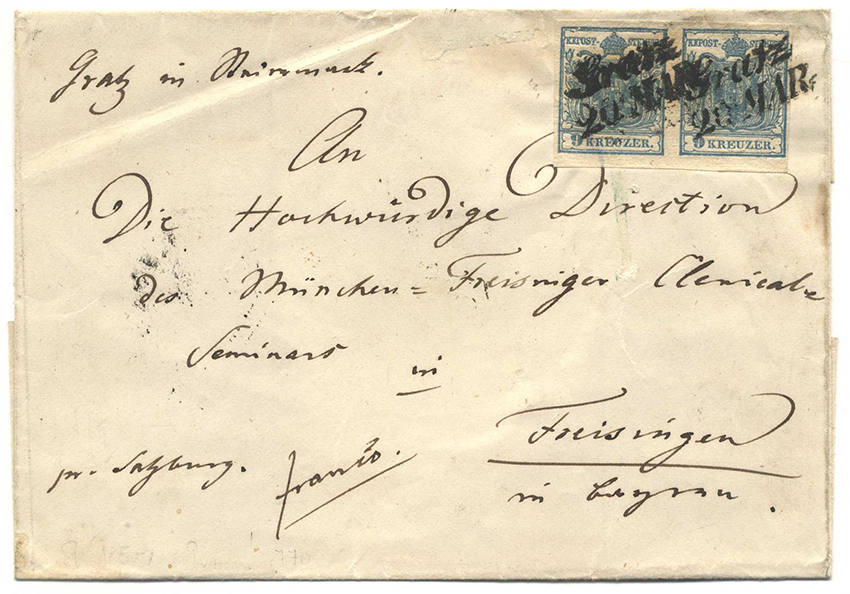 Gratz in Steiermark.
KKPOST-STEMPEL KKPOST-STEMPEL
Gratz Gratz
20 MAR: 20 MAR:
9 KREUZER. 9 KREUZER.
An
Die Hochwürdige Direction
des München= Freisinger Clerical=
Seminars
in
Freisingen
pr. Salzburg. franco.
in Bayern.